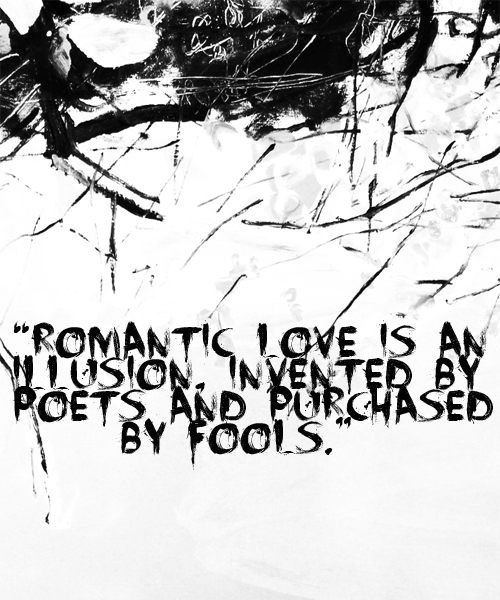 "ROMANTIC LOVE IS AN
ILLUSION, INVENTED BY
POETS AND PURCHASED
BY FOOLS."